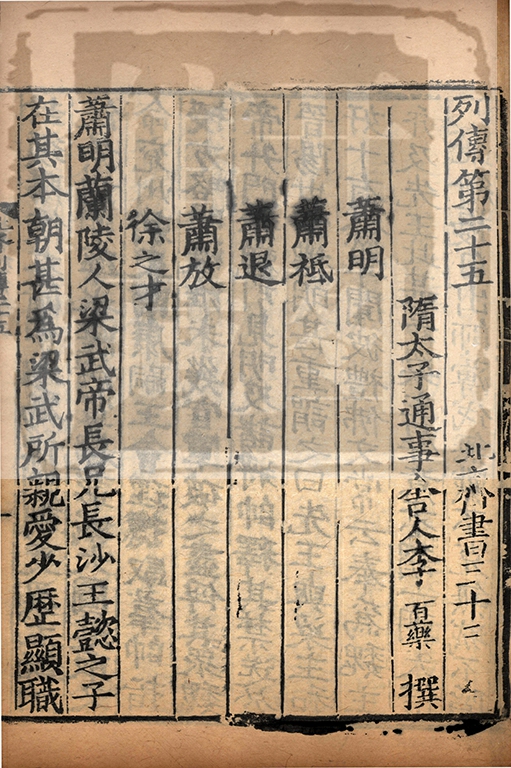 列傳第二十五 北齊書三十三
隋太子通事舍人李百藥撰
蕭明
蕭祗
蕭退
蕭放
徐之才
蕭明蘭陵人梁武帝長兄長沙王懿之子
在其本朝甚爲梁武所親愛少歴顯職